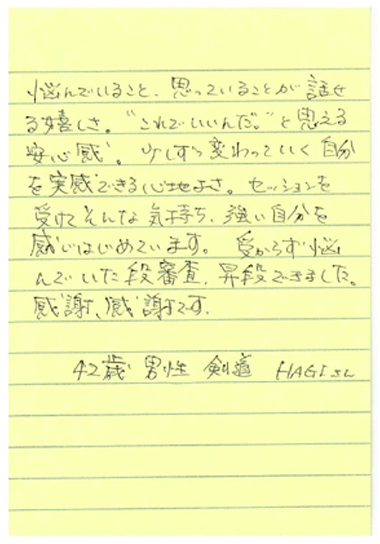 悩んでいること、思っていることが話せ
る嬉しさ。“これでいいんだ。”と思える
安心感。少しずつ変わっていく自分
を実感できる心地よさ。セッションを
受けてそんな気持ち、強い自分を
感じはじめています。受からず悩
んでいた段審査、昇段できました。
感謝、感謝です。
42歳 男性 剣道 HAGIさん